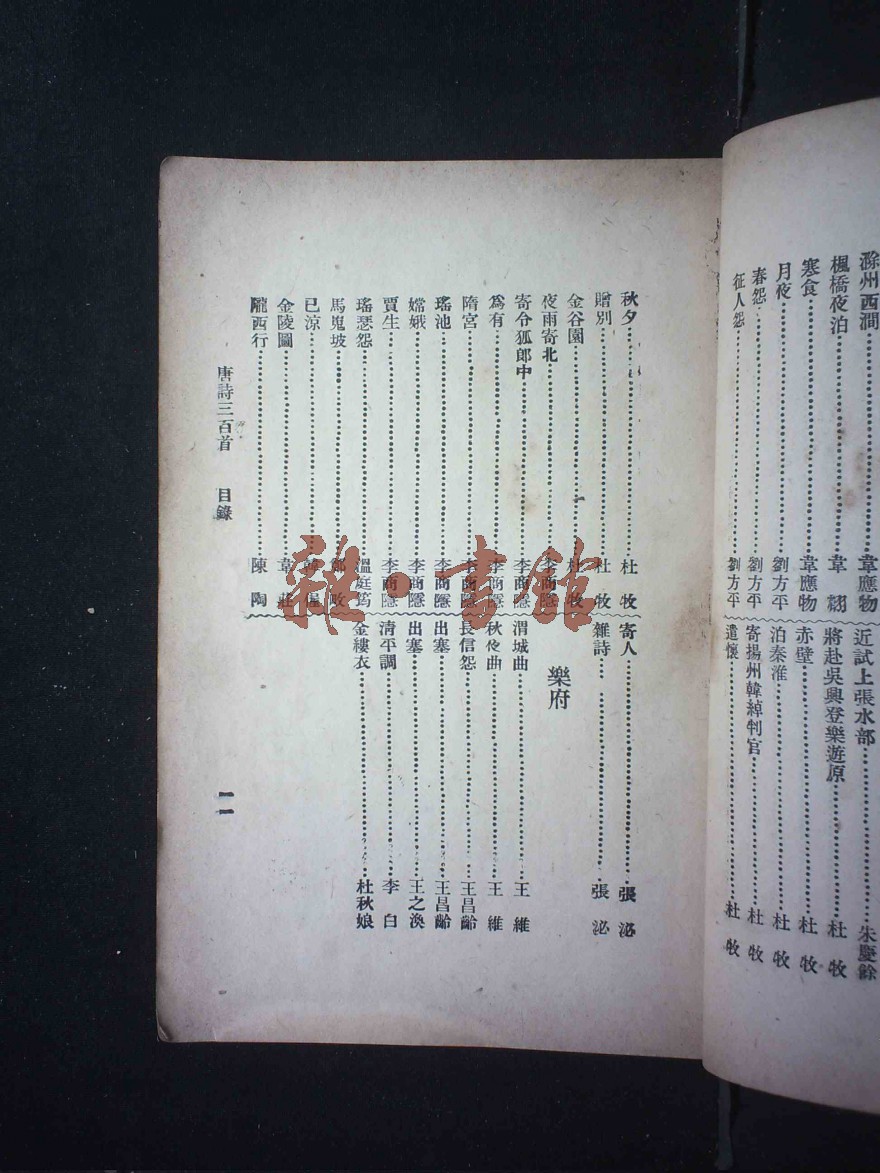 滁州西澗 韋應物
楓橋夜泊 韋
寒食 韋應物
月夜 劉方平
春怨 劉方平
征人怨 劉方平
近試上張水部 朱慶餘
將赴吳興登樂遊原 杜牧
赤壁 杜牧
泊秦淮 杜牧
寄揚州韓綽判官 杜牧
遣懷 杜牧
秋夕 杜牧
贈別 杜牧
金谷園 杜牧
夜雨寄北 李商隱
寄令狐郎中 李商隱
爲有 李商隱
隋宮 李商隱
瑤池 李商隱
嫦娥 李商隱
賈生 李商隱
瑤瑟怨 溫庭筠
馬嵬坡 鄭畋
已涼 韓偓
金陵圖 韋莊
隴西行 陳陶
寄人 張泌
雜詩 張泌
樂府
渭城曲 王維
秋夜曲 王維
長信怨 王昌齡
出塞 王昌齡
出塞 王之渙
清平調 李白
金縷衣 杜秋娘
唐詩三百首 目錄
一一
雜·書館